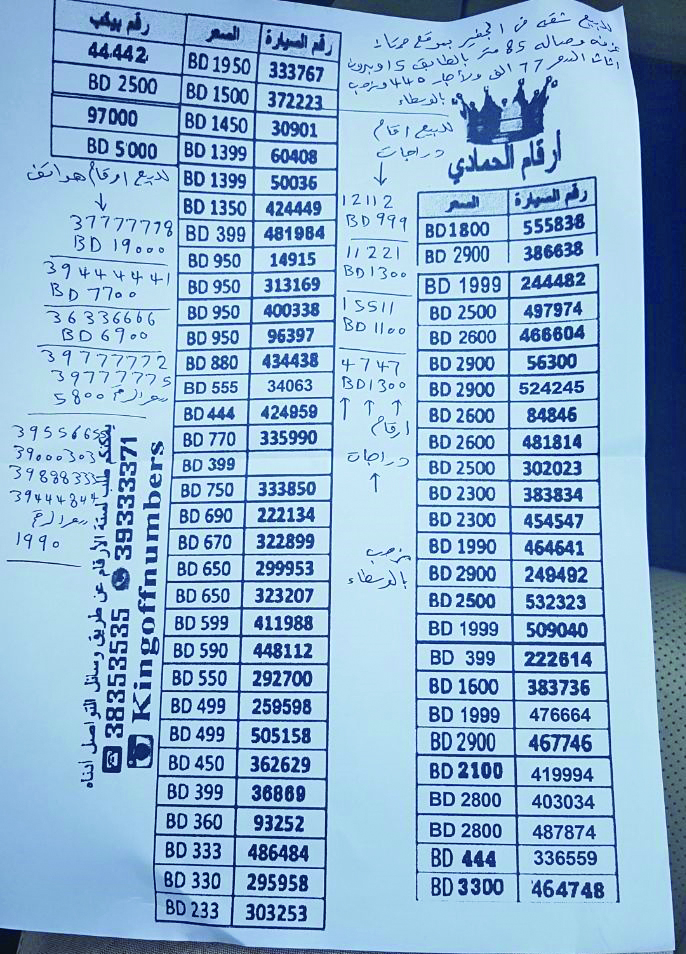 للبيع شقة في الجفير بموقع
غرفه وصاله 85 متر بالطابق 15 وبدون
اثاث السعر 77 الف ومأجر 440 ونرحب
بالوسطاء
أرقام الحمادي
رقم السيارة السعر
555838 BD 1800
386638 BD 2900
244482 BD 1999
497974 BD 2500
466604 BD 2600
56300 BD 2900
524245 BD 2900
84846 BD 2600
481814 BD 2600
302023 BD 2500
383834 BD 2300
454547 BD 2300
464641 BD 1990
249492 BD 2900
532323 BD 2500
509040 BD 1999
222614 BD 399
383736 BD 1600
476664 BD 1999
467746 BD 2900
419994 BD 2100
403034 BD 2800
487874 BD 2800
336559 BD 444
464748 BD 3300
للبيع ارقام
دراجات
12112
BD 999
11221
BD 1300
15511
BD 1100
4747
BD 1300
ارقام
دراجات
نرحب
بالوسطاء
رقم السيارة السعر
333767 BD 1950
372223 BD 1500
30901 BD 1450
60408 BD 1399
50036 BD 1399
424449 BD 1350
481984 BD 399
14915 BD 950
313169 BD 950
400338 BD 950
96397 BD 950
434438 BD 880
34063 BD 555
424959 BD 444
335990 BD 770
BD 399
333850 BD 750
222134 BD 690
322899 BD 670
299953 BD 650
323207 BD 650
411988 BD 599
448112 BD 590
292700 BD 550
259598 BD 499
505158 BD 499
362629 BD 450
36869 BD 399
93252 BD 360
486484 BD 333
295958 BD 330
303253 BD 233
رقم بيكب
44442
BD 2500
97000
BD 5000
للبيع ارقام هواتف
37777778
BD 19000
39444441
BD 7700
36336666
BD 6900
39777772
39777775
سعر الرقم 5800
39556655
39000303
39888333
39444844
سعر الرقم
1990
يمكنك طلب الأرقام عن طريق وسائل التواصل أدناه
38353535 39333371
Kingoffnumbers